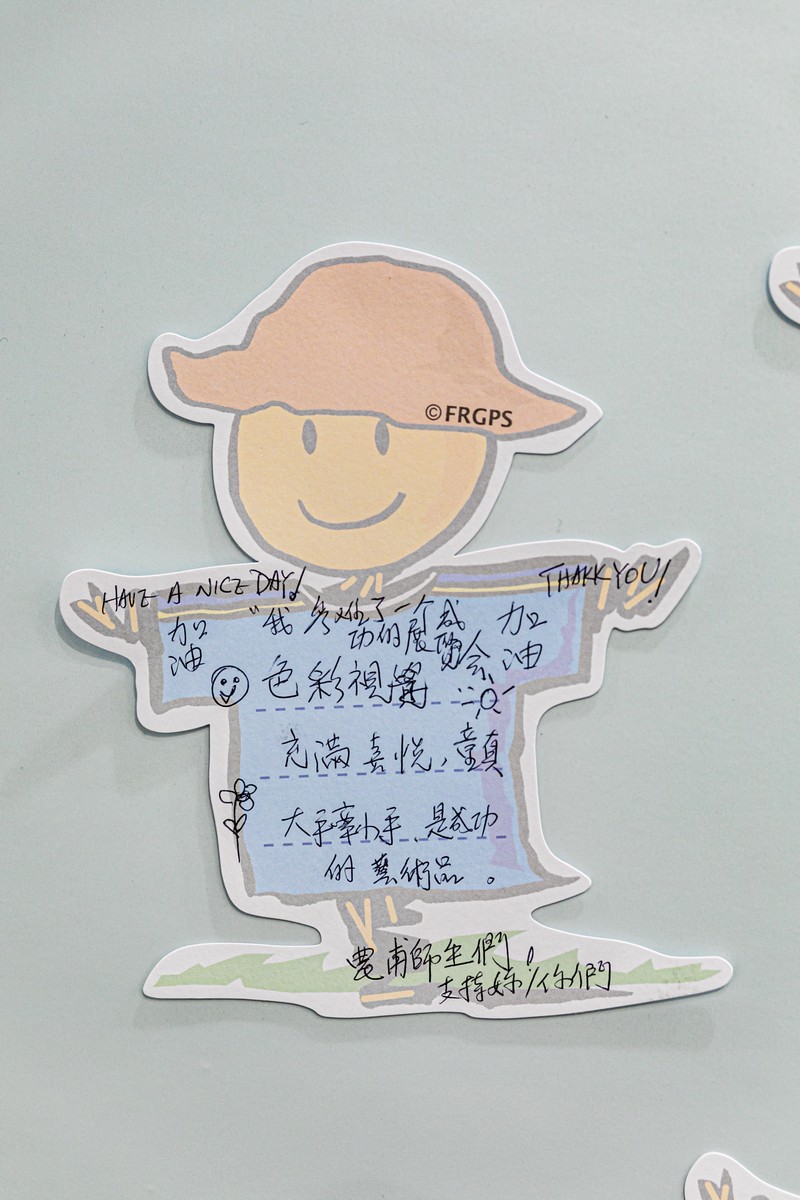 ©FRGPS
HAVE A NICE DAY!
THANK YOU!
加油
"我参難了一个成
功的展覽会
加油
色彩視覺
充滿喜悅,童真
大手牽小手、是成功
的藝術品。
豊甫師生們!
支持妳/你們